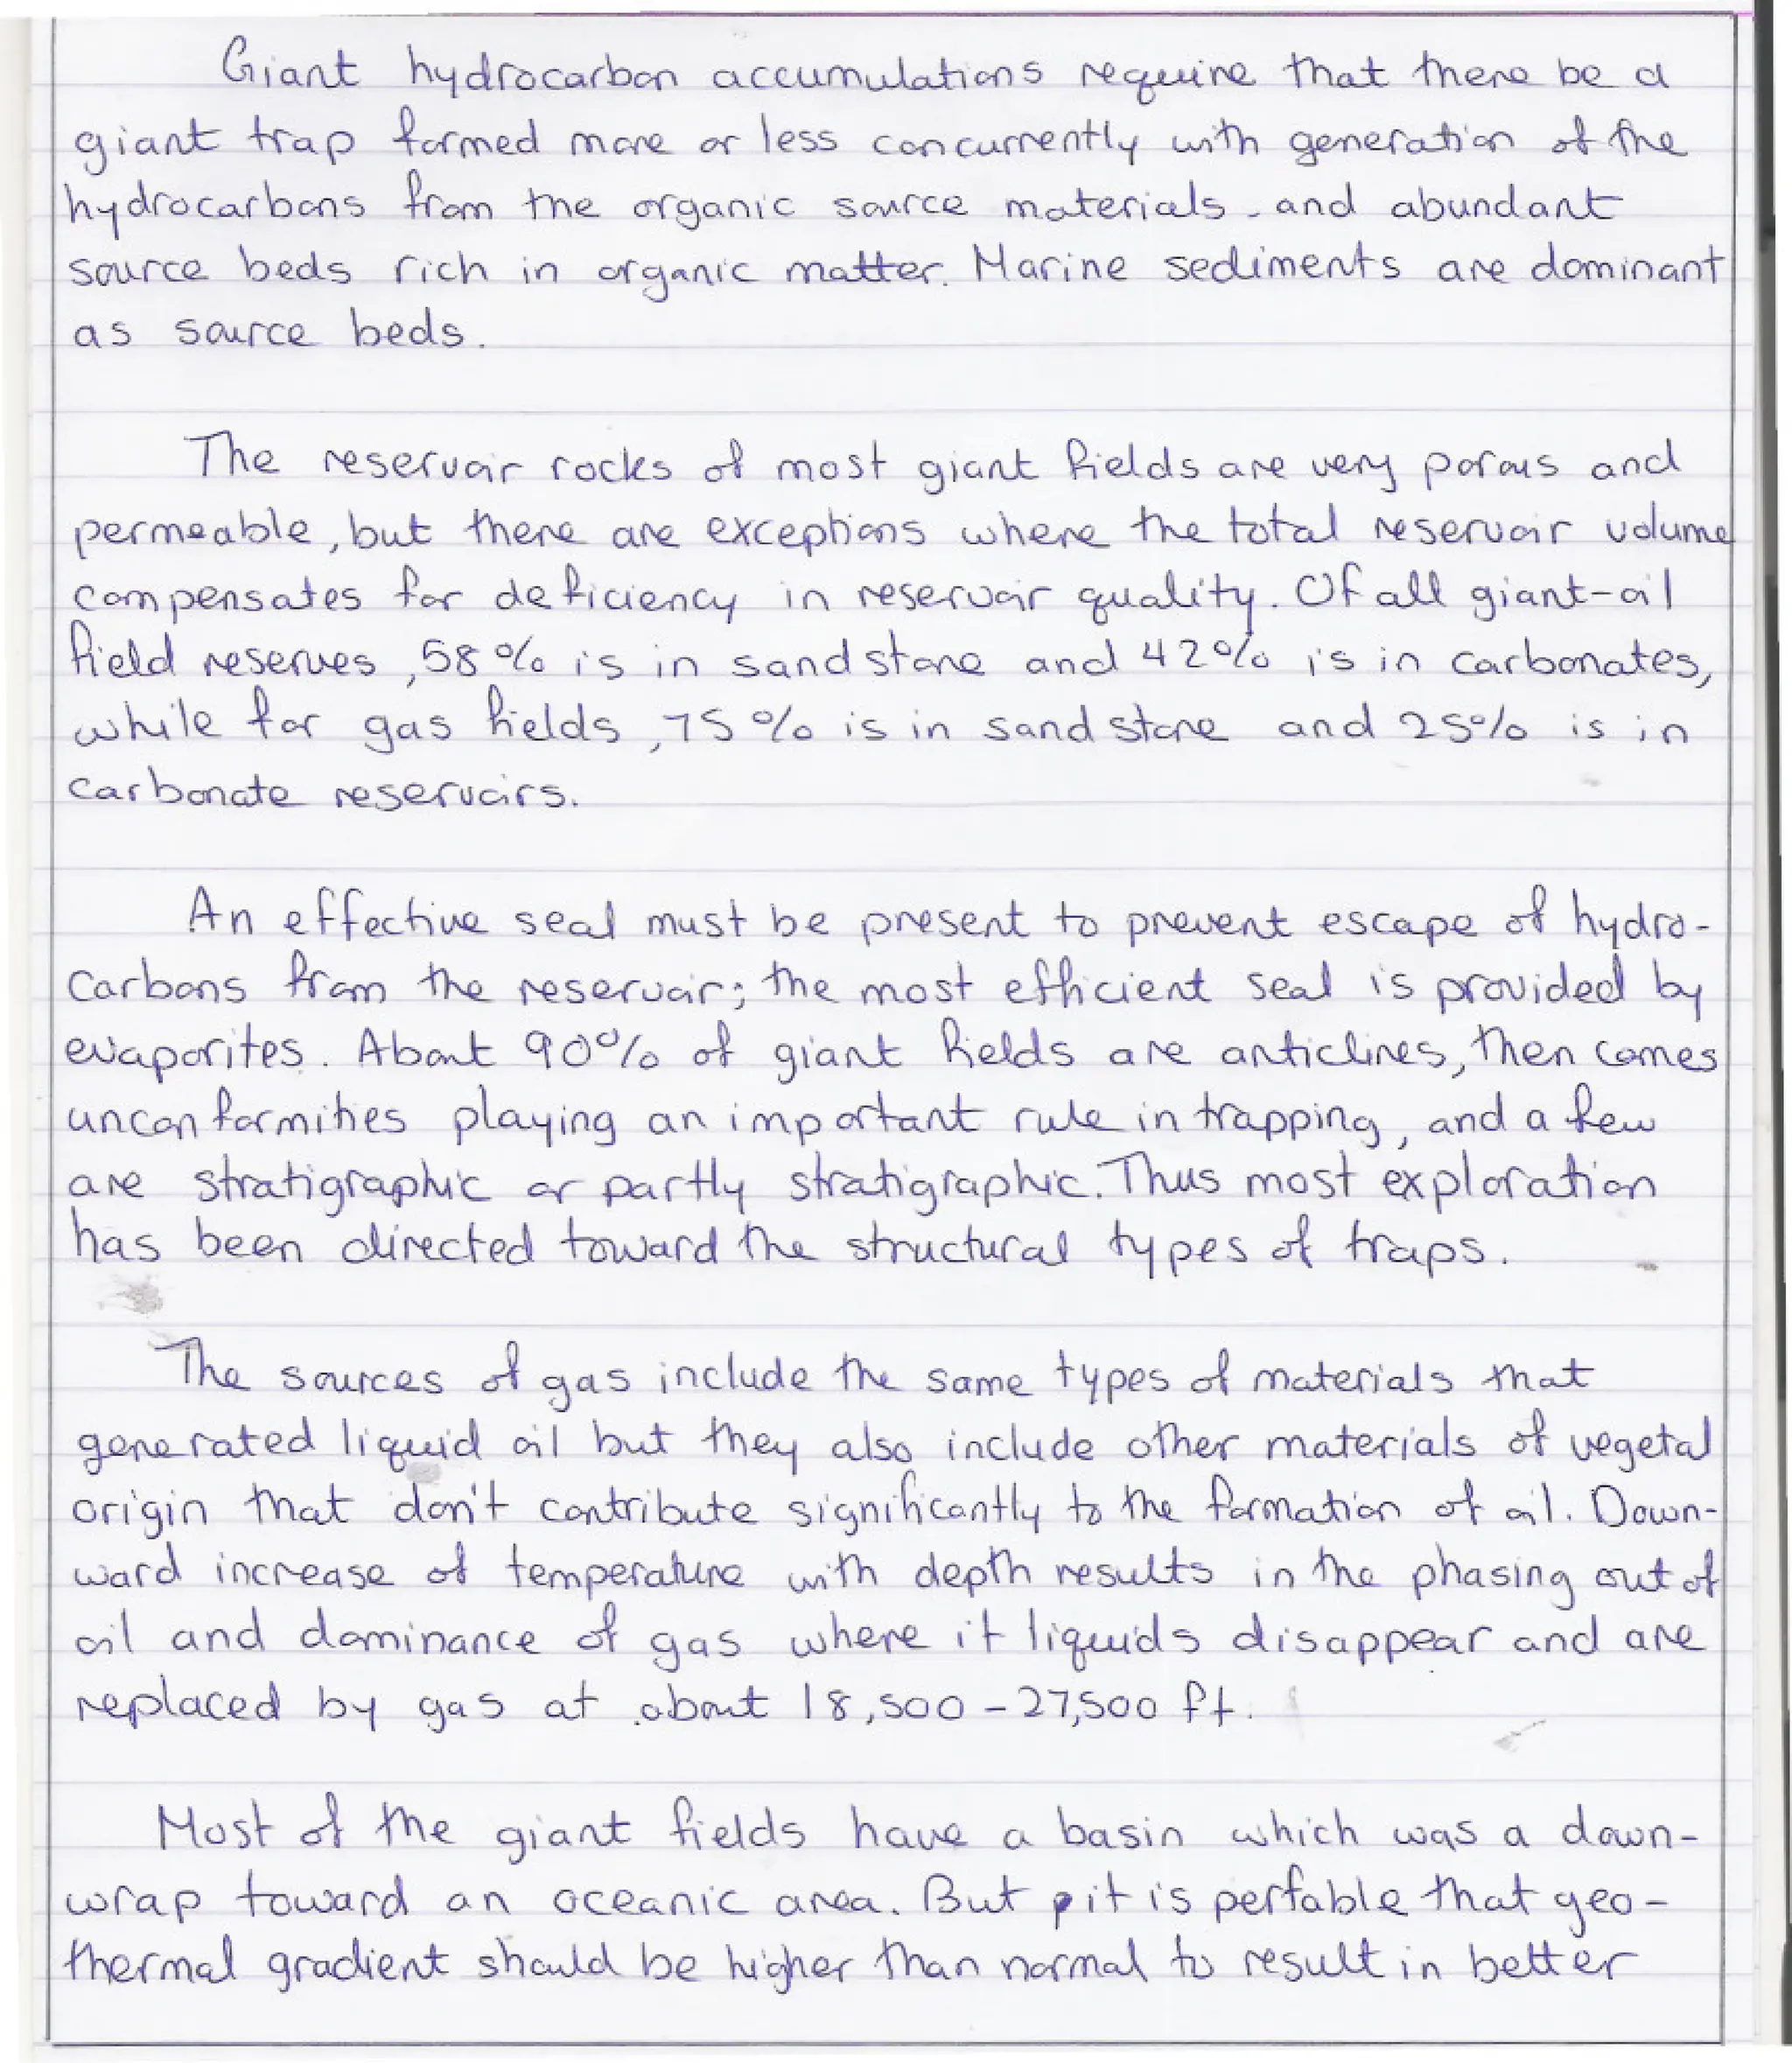 Giant hydrocarbon accumulations require that there be a
giant trap formed more or less concurrently with generation of the
hydrocarbons from the organic source materials, and abundant
source beds rich in organic matter. Marine sediments are dominant
as source beds.
The reservoir rocks of most giant fields are very porous and
permeable, but there are exceptions where the total reservoir volume
compensates for deficiency in reservoir quality. Of all giant-oil
field reserves, 58% is in sandstone and 42% is in carbonates,
while for gas fields, 75% is in sandstone and 25% is in
carbonate reservoirs.
An effective seal must be present to prevent escape of hydro-
carbons from the reservoir; the most efficient seal is provided by
evaporites. About 90% of giant fields are anticlines, then comes
unconformities playing an important rule in trapping, and a few
are stratigraphic or partly stratigraphic. Thus most exploration
has been directed toward the structural types of traps.
The sources of gas include the same types of materials that
generated liquid oil but they also include other materials of vegetal
origin that don't contribute significantly to the formation of oil. Down-
ward increase of temperature with depth results in the phasing out of
oil and dominance of gas where it liquids disappear and are
replaced by gas at about 18,500 - 27,500 ft.
Most of the giant fields have a basin which was a down-
wrap toward an oceanic area. But it is perfable that geo-
thermal gradient should be higher than normal to result in better